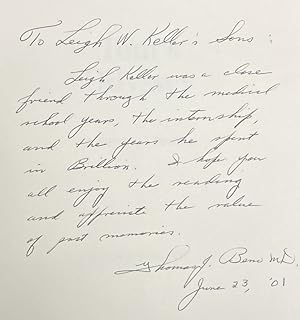 To Leigh W. Keller's Sons:
Leigh Keller was a close
friend through the medical
school years, the internship,
and the years he spent
in Brillion. I hope you
all enjoy the reading
and appreciate the value
of past memories.
Thomas J. Beno M.D.
June 23, '01